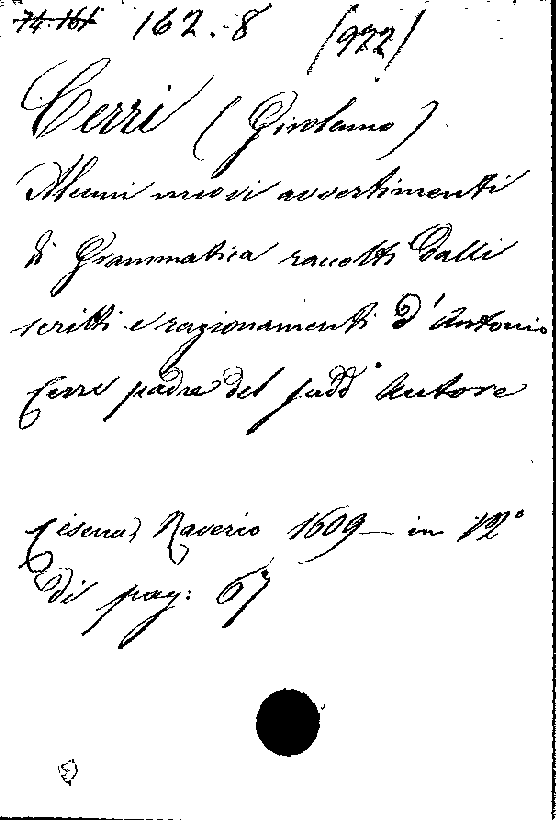 74.161 162.-8 (922)
Cerri (Girolamo)
Alcuni nuovi avvertimenti
di Grammatica raccolti dalli
scritti e ragionamenti d'Antonio
Cerri padre del sudd° Autore
Cesena, Raverio 1609 — in 12°
di pag: 67